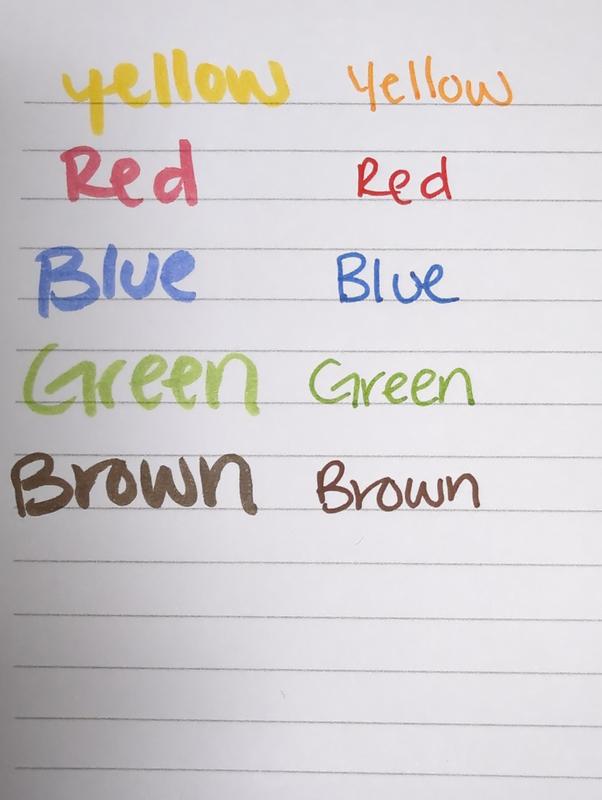 yellow Yellow
Red Red
Blue Blue
Green Green
Brown Brown